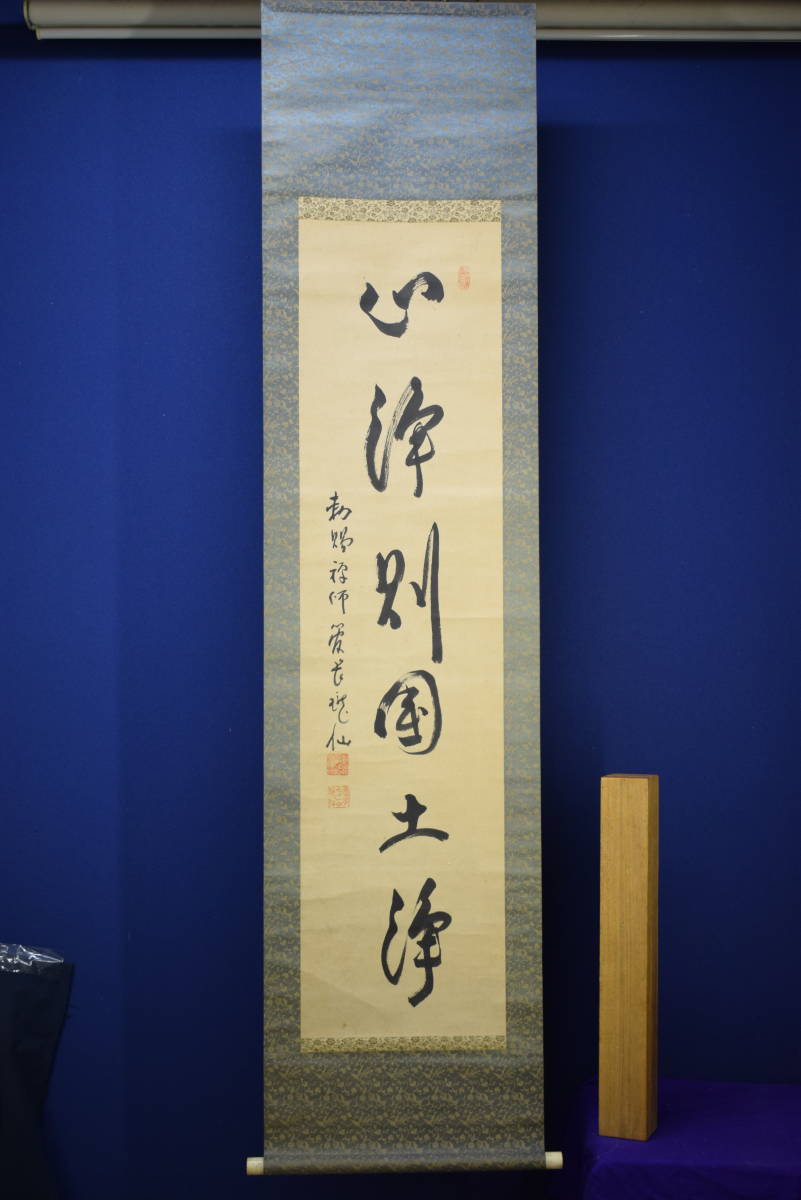 心浄則国土浄
勅賜禅師管長瓏仙